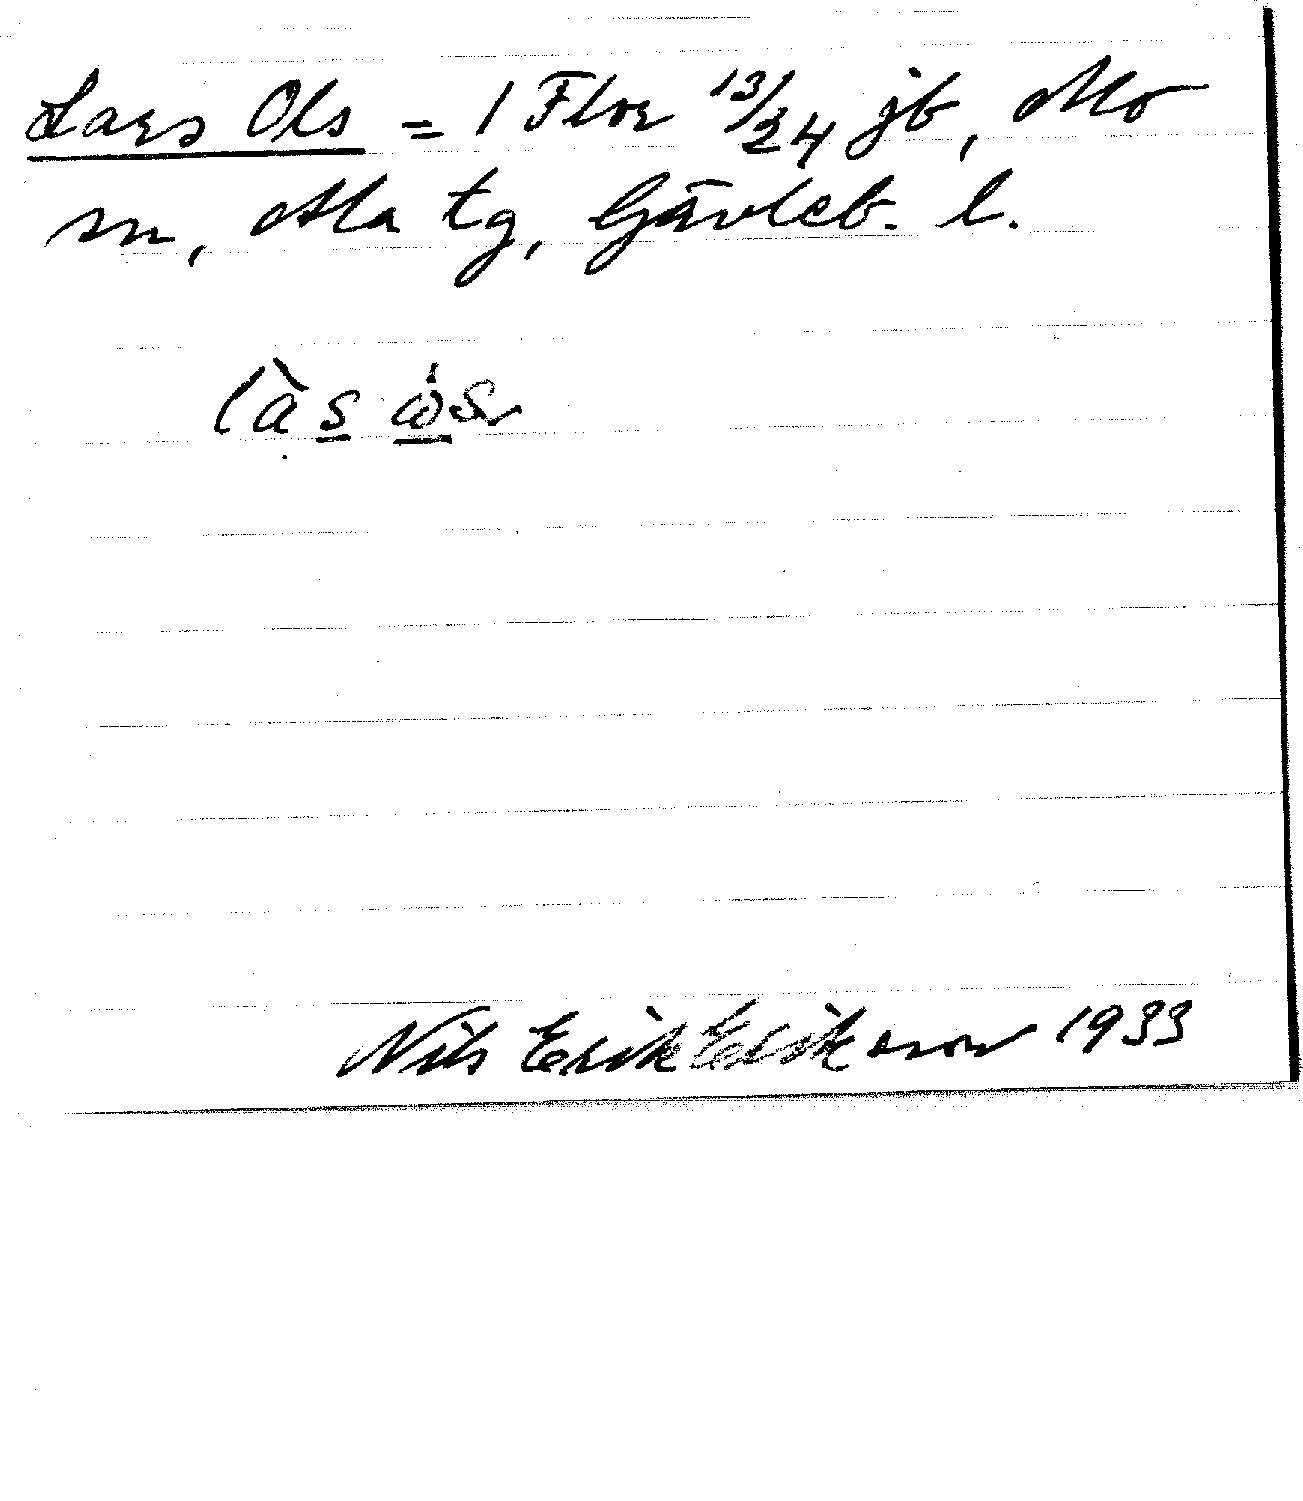 Lars Ols = 1 Flor 13/24 jb, Mo
sn, Ala tg, Gävleb. l.
Nils Erik Eriksson 1933